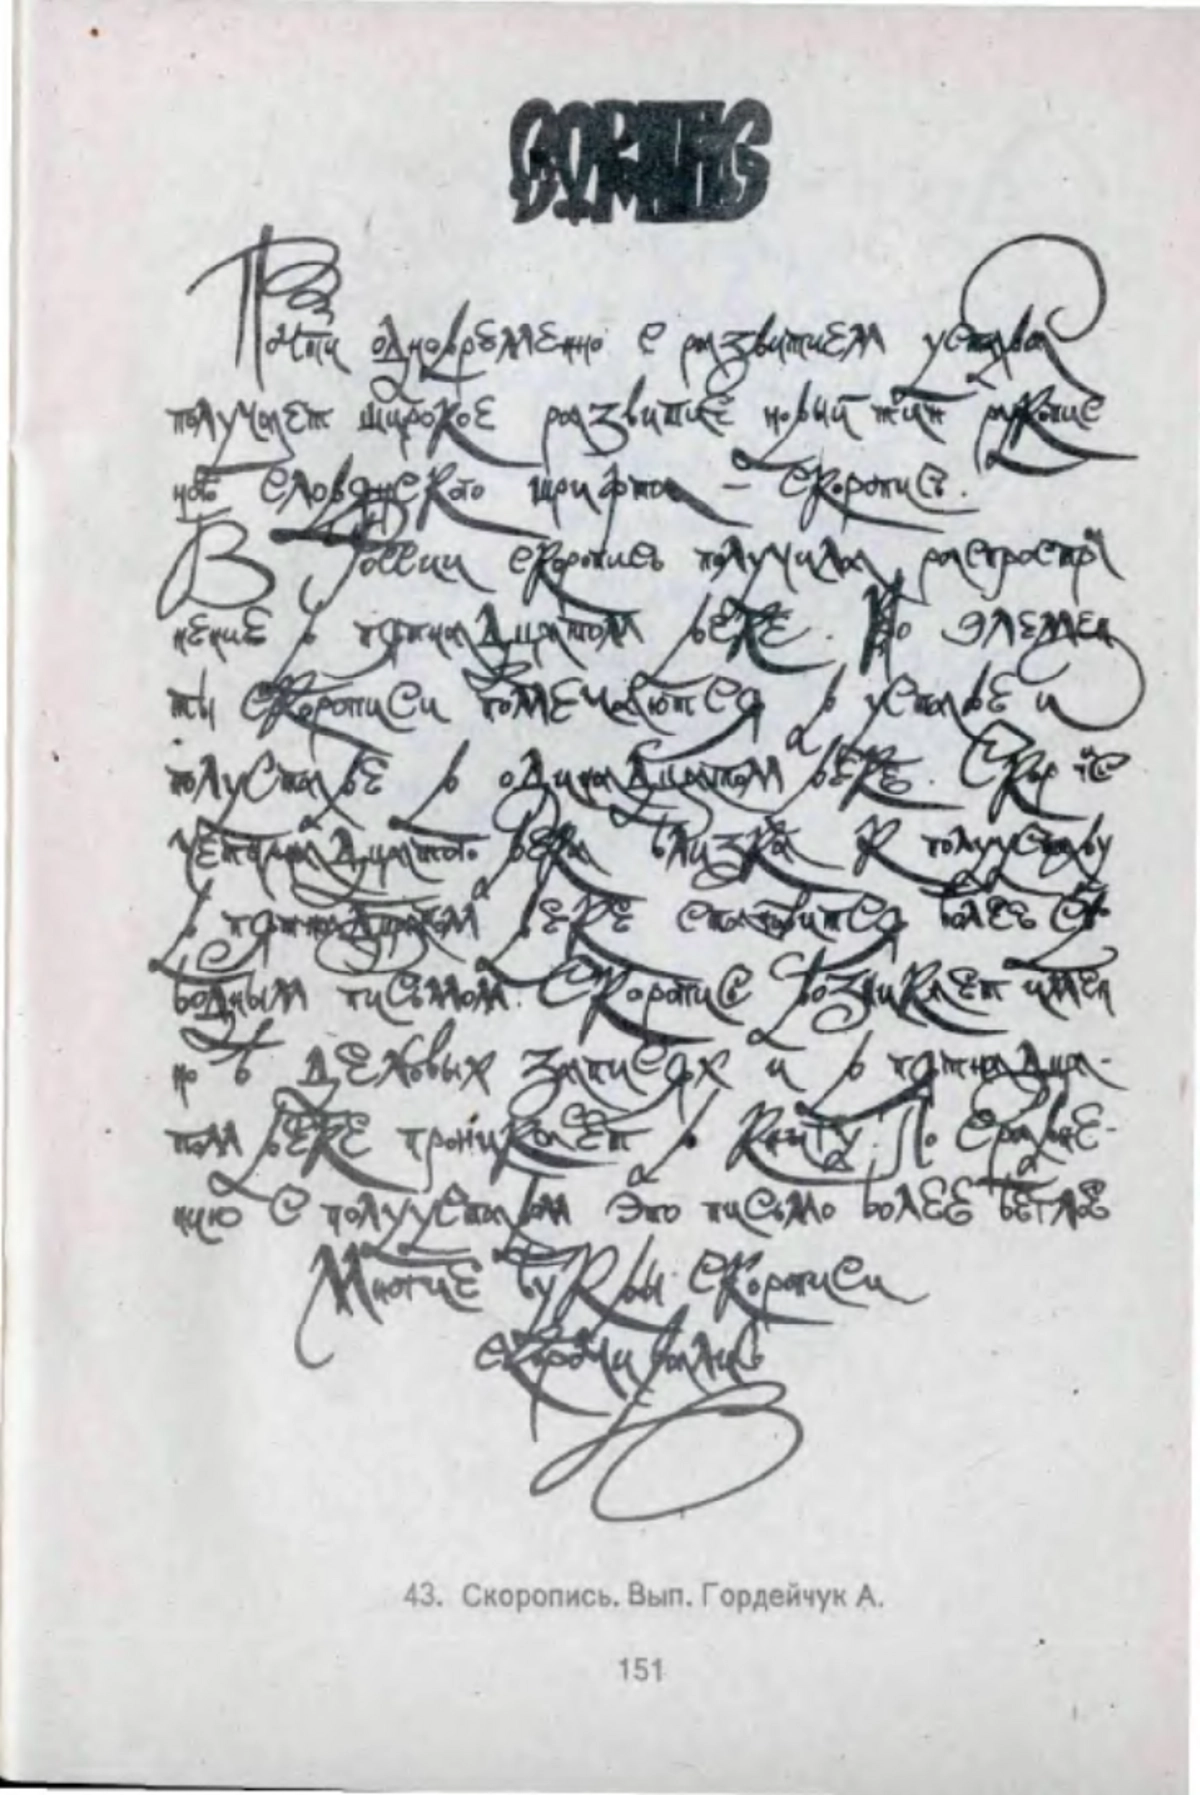 Почти одновременно с развитием устава
получает широкое развитие новый тип рукопис
ного славянского шрифта – скоропись.
В России скоропись получила распростра
нение в пятнадцатом веке. Но элемен
ты скорописи помечаются в уставе и
полуставе в одинадцатом веке. Скоропись
четырнадцатого века близка к полууставу
в пятнадцатом веке становится более сво
бодным письмом. Скоропись возникает имен
но в деловых записях и в пятнадца-
том веке проникает в книгу. По сравне-
нию с полууставом это письмо более беглое
Многие буквы скорописи
скорачивались
43. Скоропись. Вып. Гордейчук А.
151